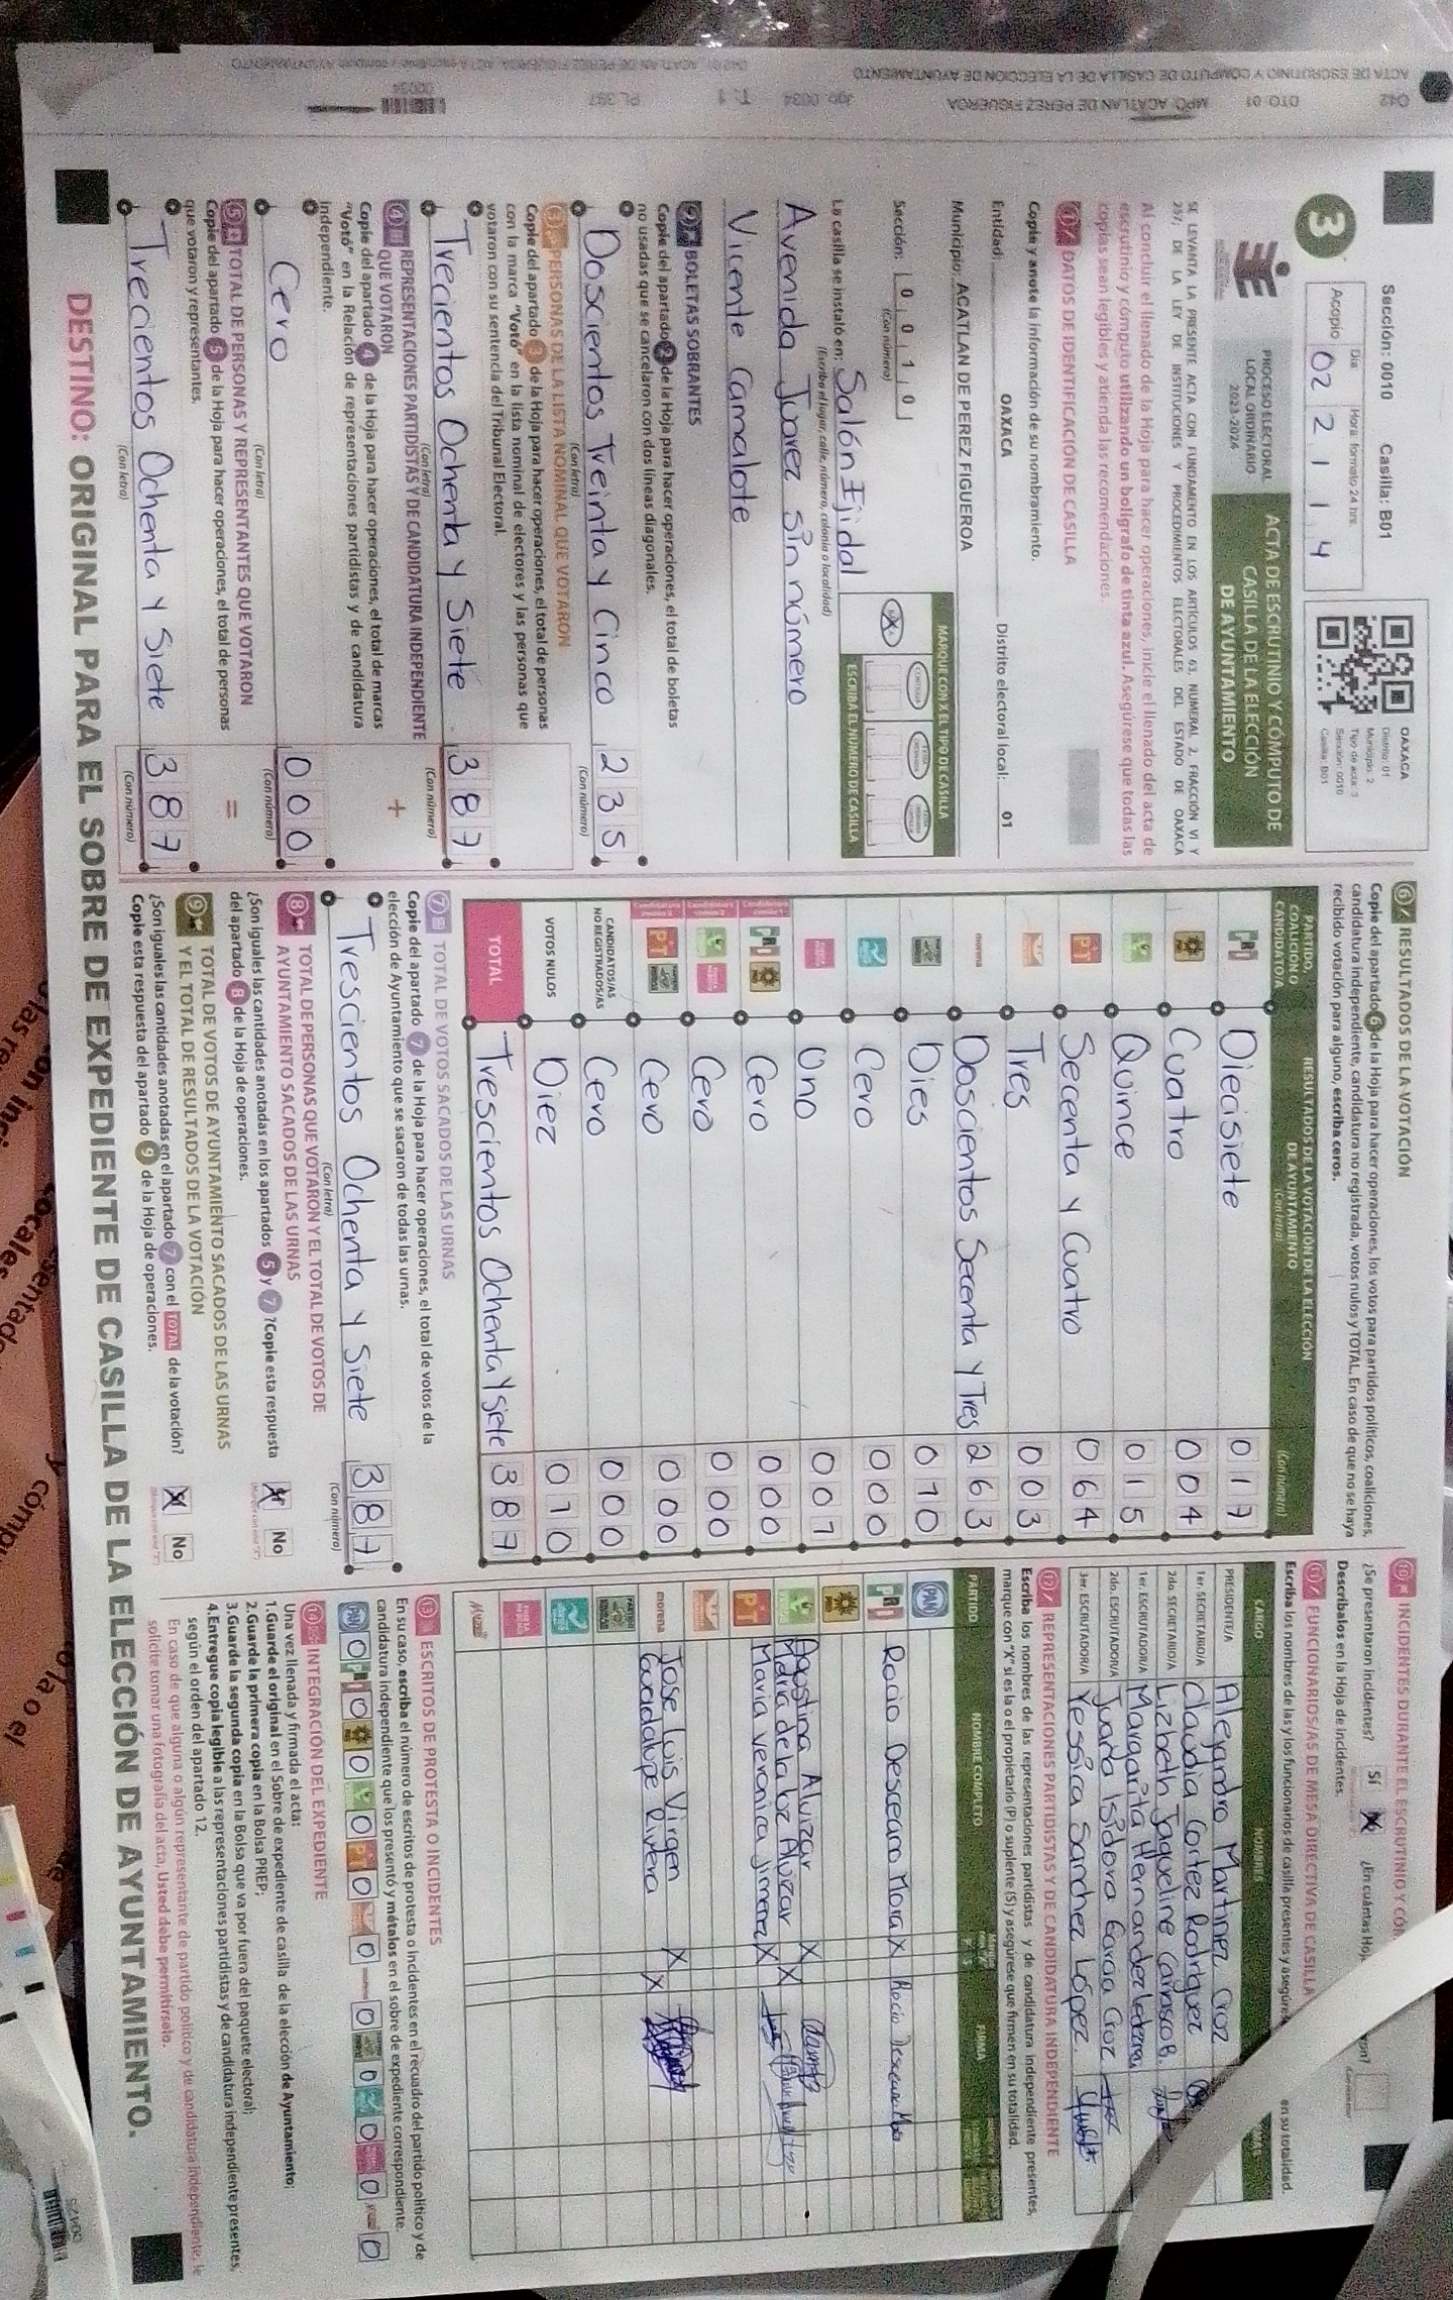 Sección: 0010 Casilla: B01
3
Día Hora: formato 24 hrs.
Acopio 02 2 1 1 4
OAXACA
Distrito: 01
Municipio: 2
Tipo de acta: 3
Sección: 0010
Casilla: B01
PROCESO ELECTORAL
LOCAL ORDINARIO
2023-2024
ACTA DE ESCRUTINIO Y CÓMPUTO DE
CASILLA DE LA ELECCIÓN
DE AYUNTAMIENTO
SE LEVANTA LA PRESENTE ACTA CON FUNDAMENTO EN LOS ARTÍCULOS 63, NUMERAL 2, FRACCIÓN VI Y
257; DE LA LEY DE INSTITUCIONES Y PROCEDIMIENTOS ELECTORALES DEL ESTADO DE OAXACA
Al concluir el llenado de la Hoja para hacer operaciones, inicie el llenado del acta de
escrutinio y cómputo utilizando un bolígrafo de tinta azul. Asegúrese que todas las
copias sean legibles y atienda las recomendaciones.
1 DATOS DE IDENTIFICACIÓN DE CASILLA
Copie y anote la información de su nombramiento.
Entidad: OAXACA Distrito electoral local: 01
Municipio: ACATLAN DE PEREZ FIGUEROA
Sección: 0 0 1 0
(Con número)
MARQUE CON X EL TIPO DE CASILLA
ESCRIBA EL NÚMERO DE CASILLA
La casilla se instaló en: Salón Ejidal
(Escriba el lugar, calle, número, colonia o localidad)
Avenida Juarez Sin número
Vicente Camalote
2 BOLETAS SOBRANTES
Copie del apartado 2 de la Hoja para hacer operaciones, el total de boletas
no usadas que se cancelaron con dos líneas diagonales.
Doscientos Treinta y Cinco 2 3 5
(Con letra) (Con número)
3 PERSONAS DE LA LISTA NOMINAL QUE VOTARON
Copie del apartado 3 de la Hoja para hacer operaciones, el total de personas
con la marca "Votó" en la lista nominal de electores y las personas que
votaron con su sentencia del Tribunal Electoral.
Trecientos Ochenta y Siete 3 8 7
(Con letra) (Con número)
4 REPRESENTACIONES PARTIDISTAS Y DE CANDIDATURA INDEPENDIENTE
QUE VOTARON +
Copie del apartado 4 de la Hoja para hacer operaciones, el total de marcas
"Votó" en la Relación de representaciones partidistas y de candidatura
independiente.
Cero 0 0 0
(Con letra) (Con número)
5 TOTAL DE PERSONAS Y REPRESENTANTES QUE VOTARON =
Copie del apartado 5 de la Hoja para hacer operaciones, el total de personas
que votaron y representantes.
Trecientos Ochenta y Siete 3 8 7
(Con letra) (Con número)
6 RESULTADOS DE LA VOTACIÓN
Copie del apartado 6 de la Hoja para hacer operaciones, los votos para partidos políticos, coaliciones,
candidatura independiente, candidatura no registrada, votos nulos y TOTAL. En caso de que no se haya
recibido votación para alguno, escriba ceros.
PARTIDO,
COALICIÓN O
CANDIDATO/A
RESULTADOS DE LA VOTACIÓN DE LA ELECCIÓN
DE AYUNTAMIENTO
(Con letra) (Con número)
PRI Diecisiete 0 1 7
Cuatro 0 0 4
Quince 0 1 5
PT Secenta y Cuatro 0 6 4
Tres 0 0 3
morena Doscientos Secenta y Tres 2 6 3
Dies 0 1 0
Cero 0 0 0
Uno 0 0 1
PRI Cero 0 0 0
Cero 0 0 0
PT Cero 0 0 0
CANDIDATOS/AS
NO REGISTRADOS/AS Cero 0 0 0
VOTOS NULOS Diez 0 1 0
TOTAL Trescientos Ochenta y siete 3 8 7
7 TOTAL DE VOTOS SACADOS DE LAS URNAS
Copie del apartado 7 de la Hoja para hacer operaciones, el total de votos de la
elección de Ayuntamiento que se sacaron de todas las urnas.
Trescientos Ochenta y Siete 3 8 7
(Con letra) (Con número)
8 TOTAL DE PERSONAS QUE VOTARON Y EL TOTAL DE VOTOS DE
AYUNTAMIENTO SACADOS DE LAS URNAS
¿Son iguales las cantidades anotadas en los apartados 5 y 7? Copie esta respuesta
del apartado 8 de la Hoja de operaciones. No
9 TOTAL DE VOTOS DE AYUNTAMIENTO SACADOS DE LAS URNAS
Y EL TOTAL DE RESULTADOS DE LA VOTACIÓN
¿Son iguales las cantidades anotadas en el apartado 7 con el TOTAL de la votación?
Copie esta respuesta del apartado 9 de la Hoja de operaciones. No
10 INCIDENTES DURANTE EL ESCRUTINIO Y
¿Se presentaron incidentes? Sí ¿En cuántas
Descríbalos en la Hoja de incidentes.
11 FUNCIONARIOS/AS DE MESA DIRECTIVA DE CASILLA
Escriba los nombres de las y los funcionarios de casilla presentes y en su totalidad.
CARGO NOMBRES
PRESIDENTE/A Alejandro Martinez Cruz
1er. SECRETARIO/A Claudia Cortez Rodriguez
2do. SECRETARIO/A Lizbeth Jaqueline Carrasco B.
1er. ESCRUTADOR/A Margarita Hernandez
2do. ESCRUTADOR/A Juana Isidora Garcia Cruz
3er. ESCRUTADOR/A Yessica Sanchez López
12 REPRESENTACIONES PARTIDISTAS Y DE CANDIDATURA INDEPENDIENTE
Escriba los nombres de las representaciones partidistas y de candidatura independiente presentes,
marque con "X" si es la o el propietario (P) o suplente (S) y asegúrese que firmen en su totalidad.
PARTIDO NOMBRE COMPLETO FIRMA
PAN
PRI Rocio Desceano Mora X
Agostina Alvizar X
Maria de la luz Alvizar X
PT Maria veronica jimenez X
morena Jose Luis Virgen X
Guadalupe Rivera X
13 ESCRITOS DE PROTESTA O INCIDENTES
En su caso, escriba el número de escritos de protesta o incidentes en el recuadro del partido político y de
candidatura independiente que los presentó y métalos en el sobre de expediente correspondiente.
PAN 0 PRI 0 0 0 PT 0 0 0 0 0 0 0
14 INTEGRACIÓN DEL EXPEDIENTE
Una vez llenada y firmada el acta:
1.Guarde el original en el Sobre de expediente de casilla de la elección de Ayuntamiento;
2.Guarde la primera copia en la Bolsa PREP;
3.Guarde la segunda copia en la Bolsa que va por fuera del paquete electoral;
4.Entregue copia legible a las representaciones partidistas y de candidatura independiente presentes,
según el orden del apartado 12.
En caso de que alguna o algún representante de partido político y de candidatura independiente, le
solicite tomar una fotografía del acta, Usted debe permitírselo.
DESTINO: ORIGINAL PARA EL SOBRE DE EXPEDIENTE DE CASILLA DE LA ELECCIÓN DE AYUNTAMIENTO.